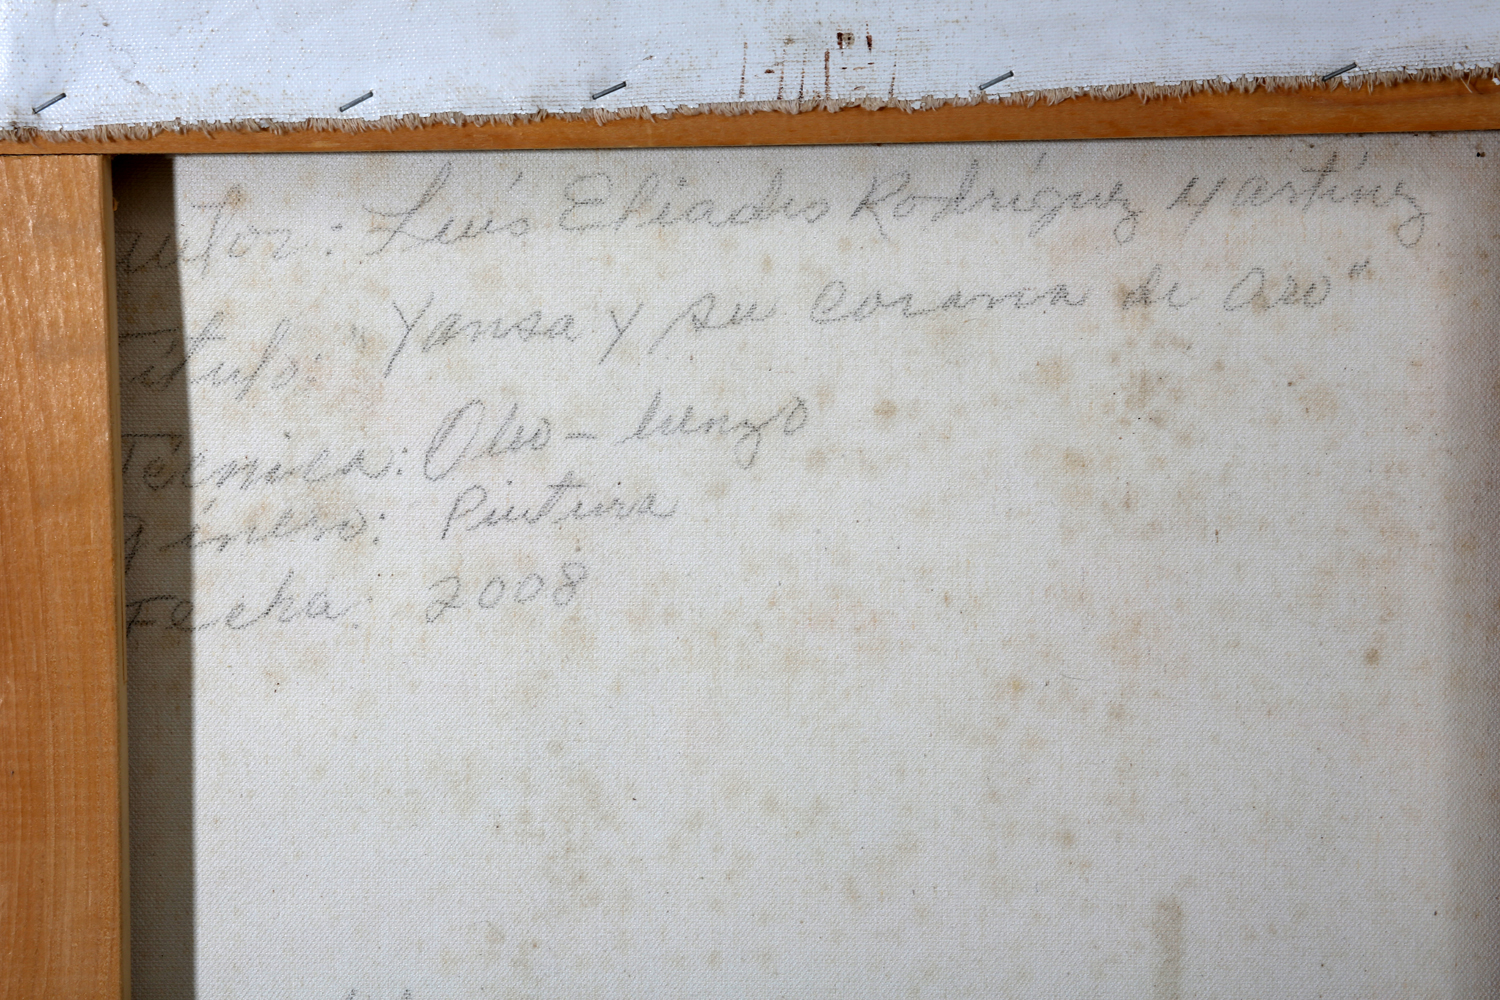 autor: Luis Eliades Rodríguez Martínez
Título: "Yansa y su corona de oro"
Técnica: Oleo - lienzo
Género: Pintura
Fecha: 2008